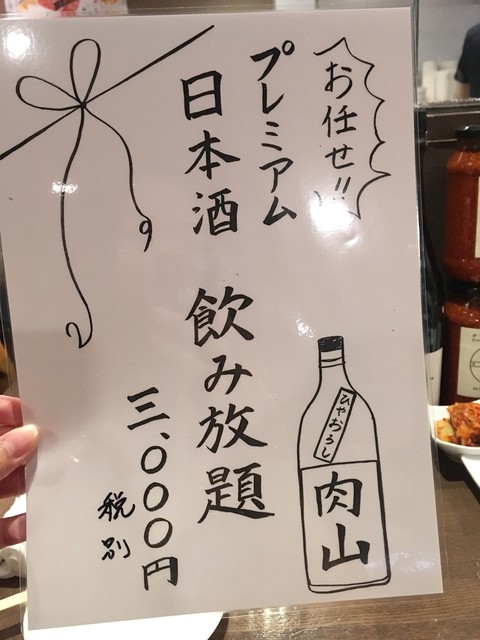 お任せ!!
プレミアム
日本酒 飲み放題
三、〇〇〇円
税別
ひやおろし
肉山